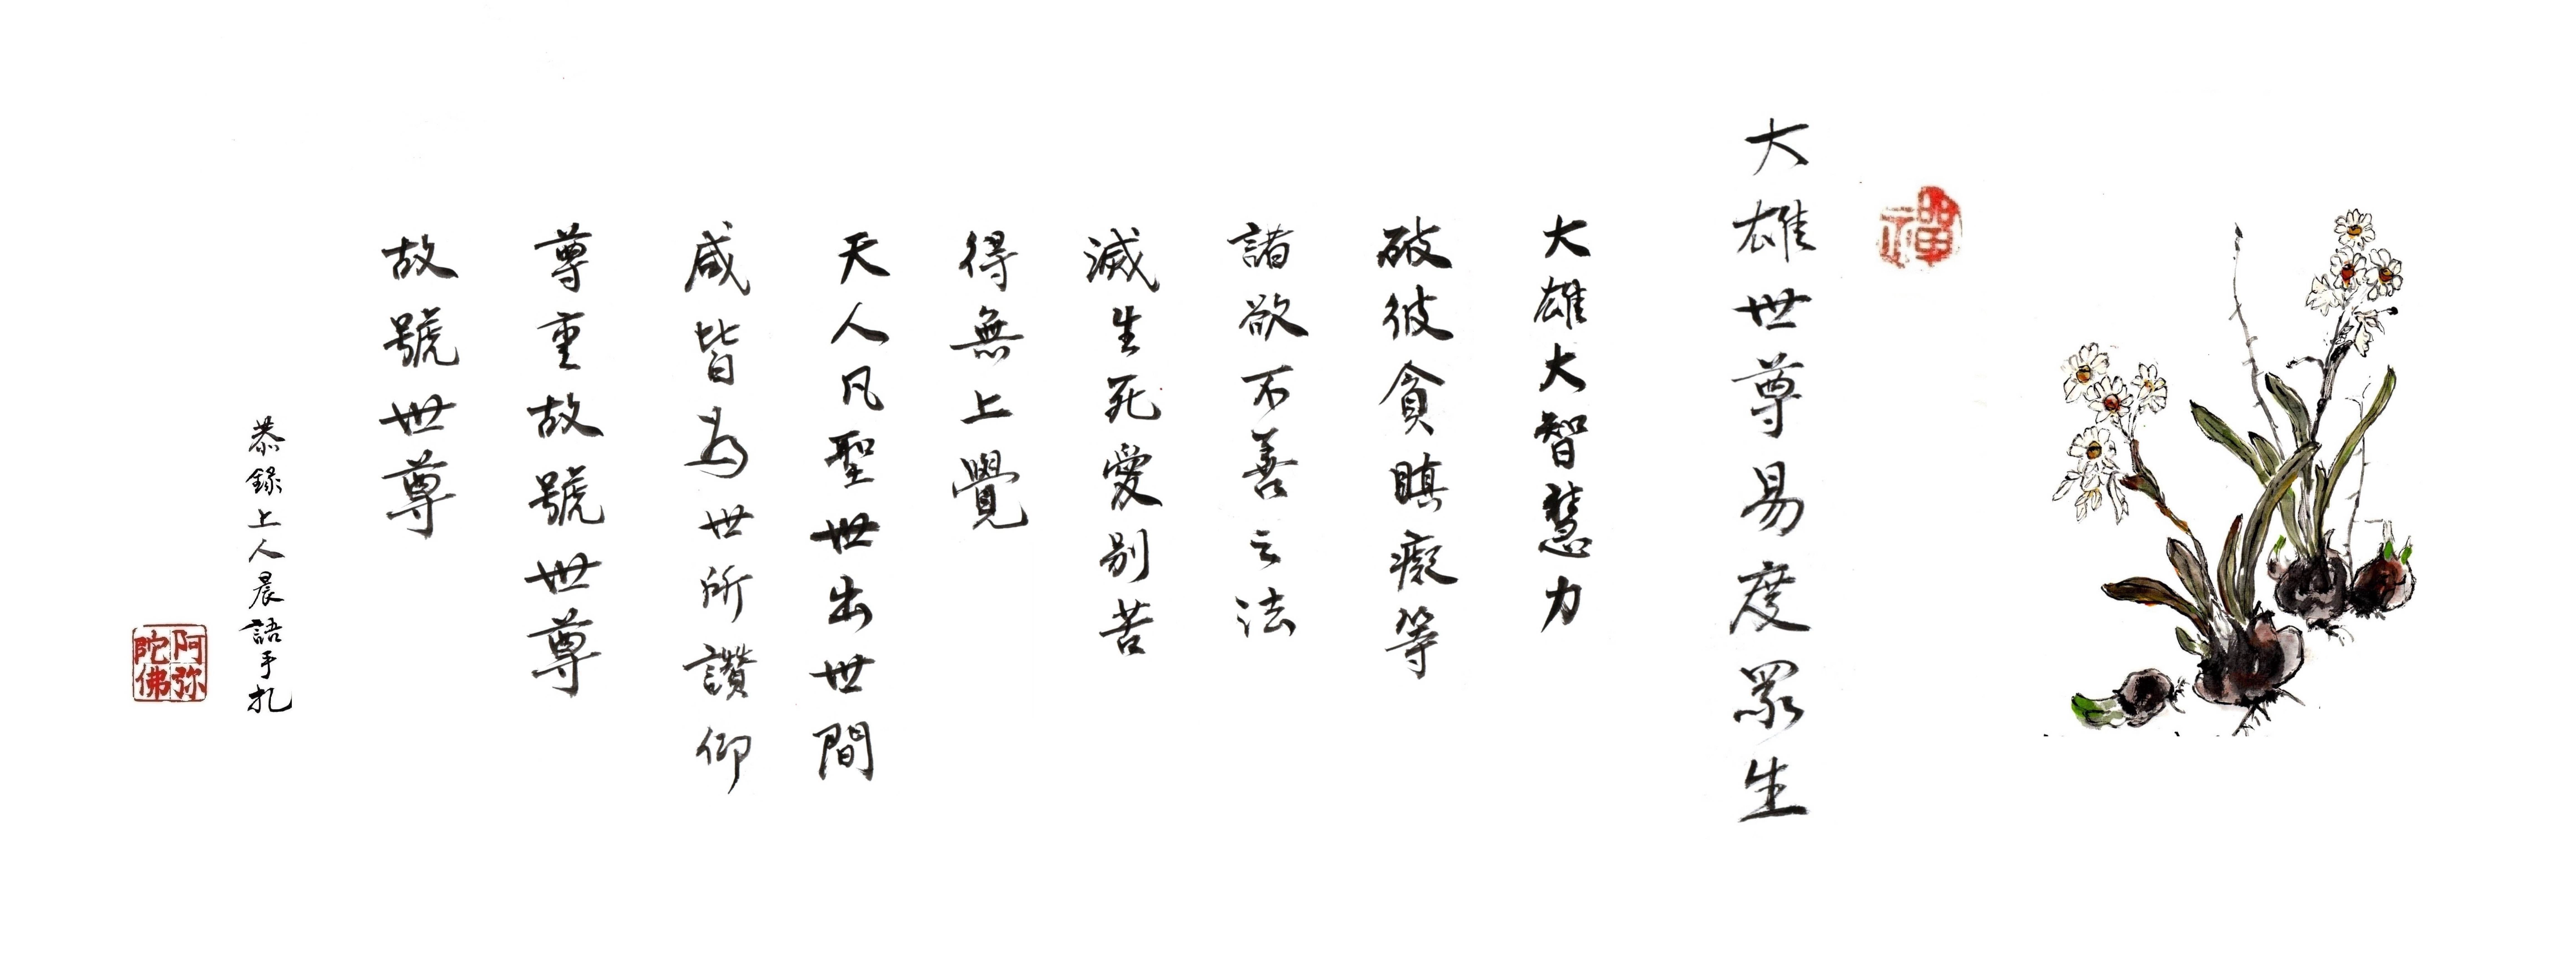 禪
大雄世尊易度眾生
大雄大智慧力
破彼貪瞋癡等
諸欲不善之法
滅生死愛別苦
得無上覺
天人凡聖世出世間
咸皆為世所讚仰
尊重故號世尊
故號世尊
恭錄上人晨語手扎
阿弥陀佛